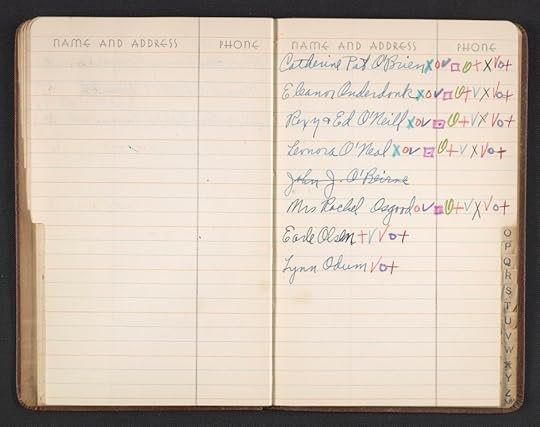 NAME AND ADDRESS PHONE
NAME AND ADDRESS PHONE
Catherine Pat O'Brien
Eleanor Onderdonk
Roxy & Ed O'Neill
Leonora O'Neal
John J. O'Beirne
Mrs Rachel Osgood
Earle Olsen
Lynn Odum
O
P
Q
R
S
T
U
V
W
X
Y
Z